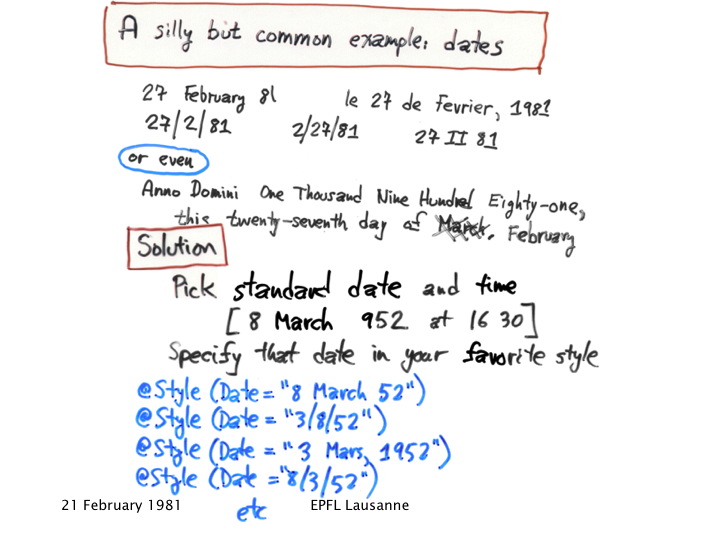 A silly but common example: dates
27 February 81 le 27 de Fevrier, 1981
27/2/81 2/27/81 27 II 81
or even
Anno Domini One Thousand Nine Hundred Eighty-one,
this twenty-seventh day of March, February
Solution
Pick standard date and time
[8 March 952 at 16 30]
Specify that date in your favorite style
@Style (Date = "8 March 52")
@Style (Date = "3/8/52")
@Style (Date = "3 Mars, 1952")
@Style (Date = "8/3/52")
etc
21 February 1981 EPFL Lausanne